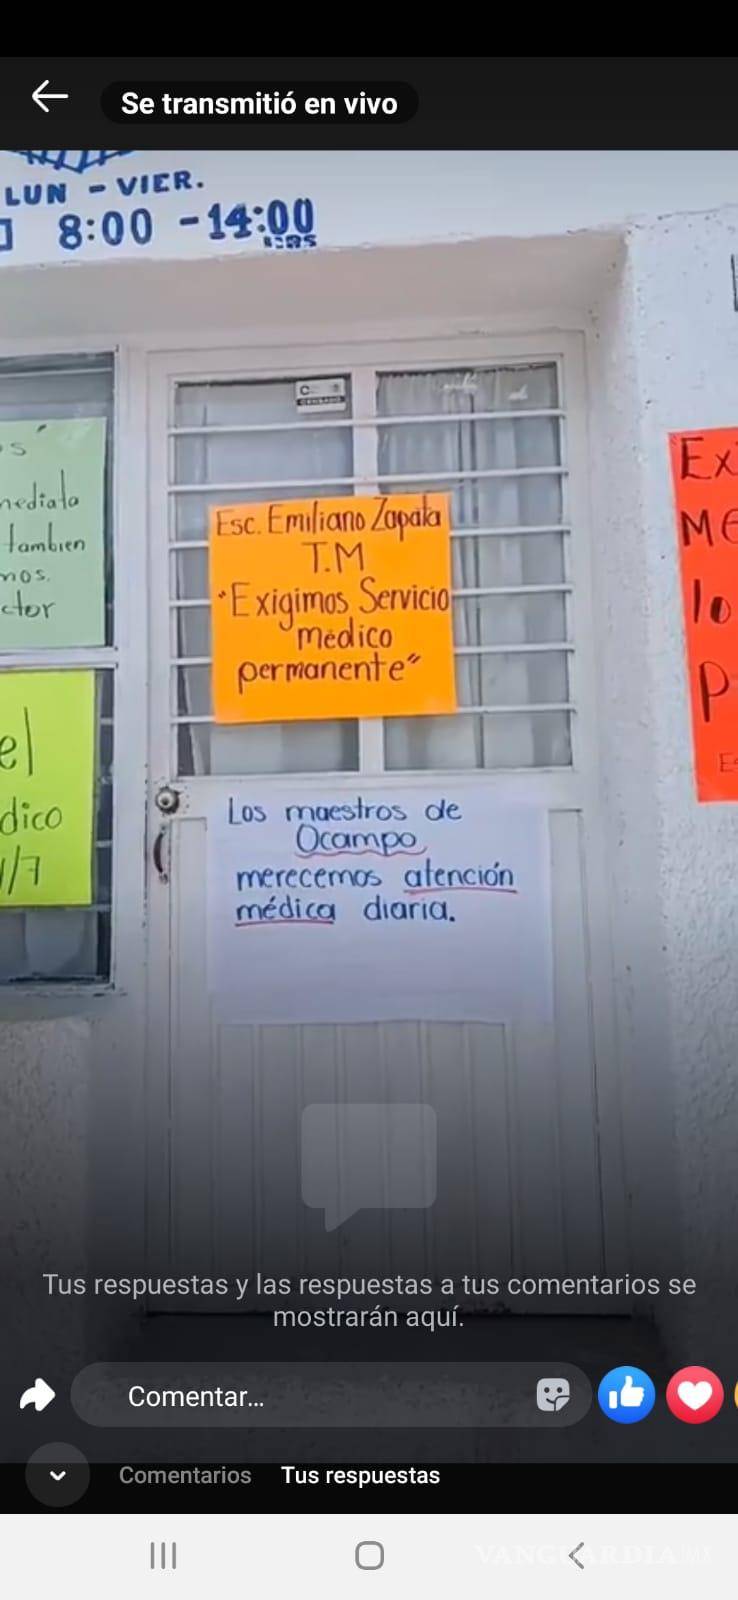 Se transmitió en vivo
LUN - VIER.
8:00 - 14:00
HRS
os
mediata
tambien
mos.
ctor
el
dico
/7
Esc. Emiliano Zapata
T.M
"Exigimos Servicio
médico
permanente"
Los maestros de
Ocampo
merecemos atención
médica diaria.
Ex
ME
lo
P
Es
Tus respuestas y las respuestas a tus comentarios se
mostrarán aquí.
Comentar...
Comentarios
Tus respuestas
VANGUARDIA|MX